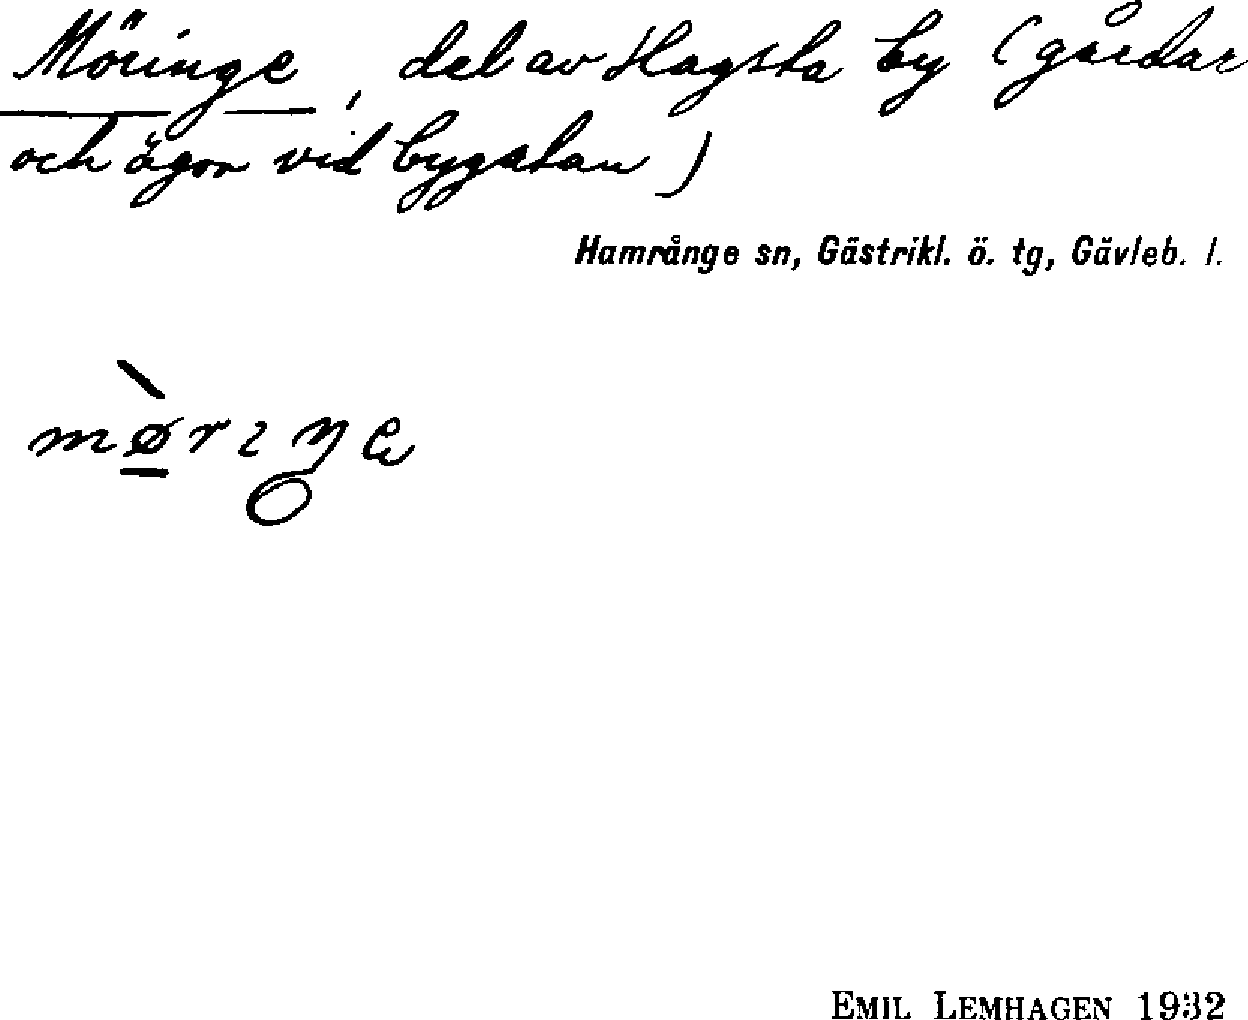 Möringe, del av Hagsta by (gårdar
och ägor vid bygatan)
Hamrånge sn, Gästrikl. ö. tg, Gävleb. l.
EMIL LEMHAGEN 1932